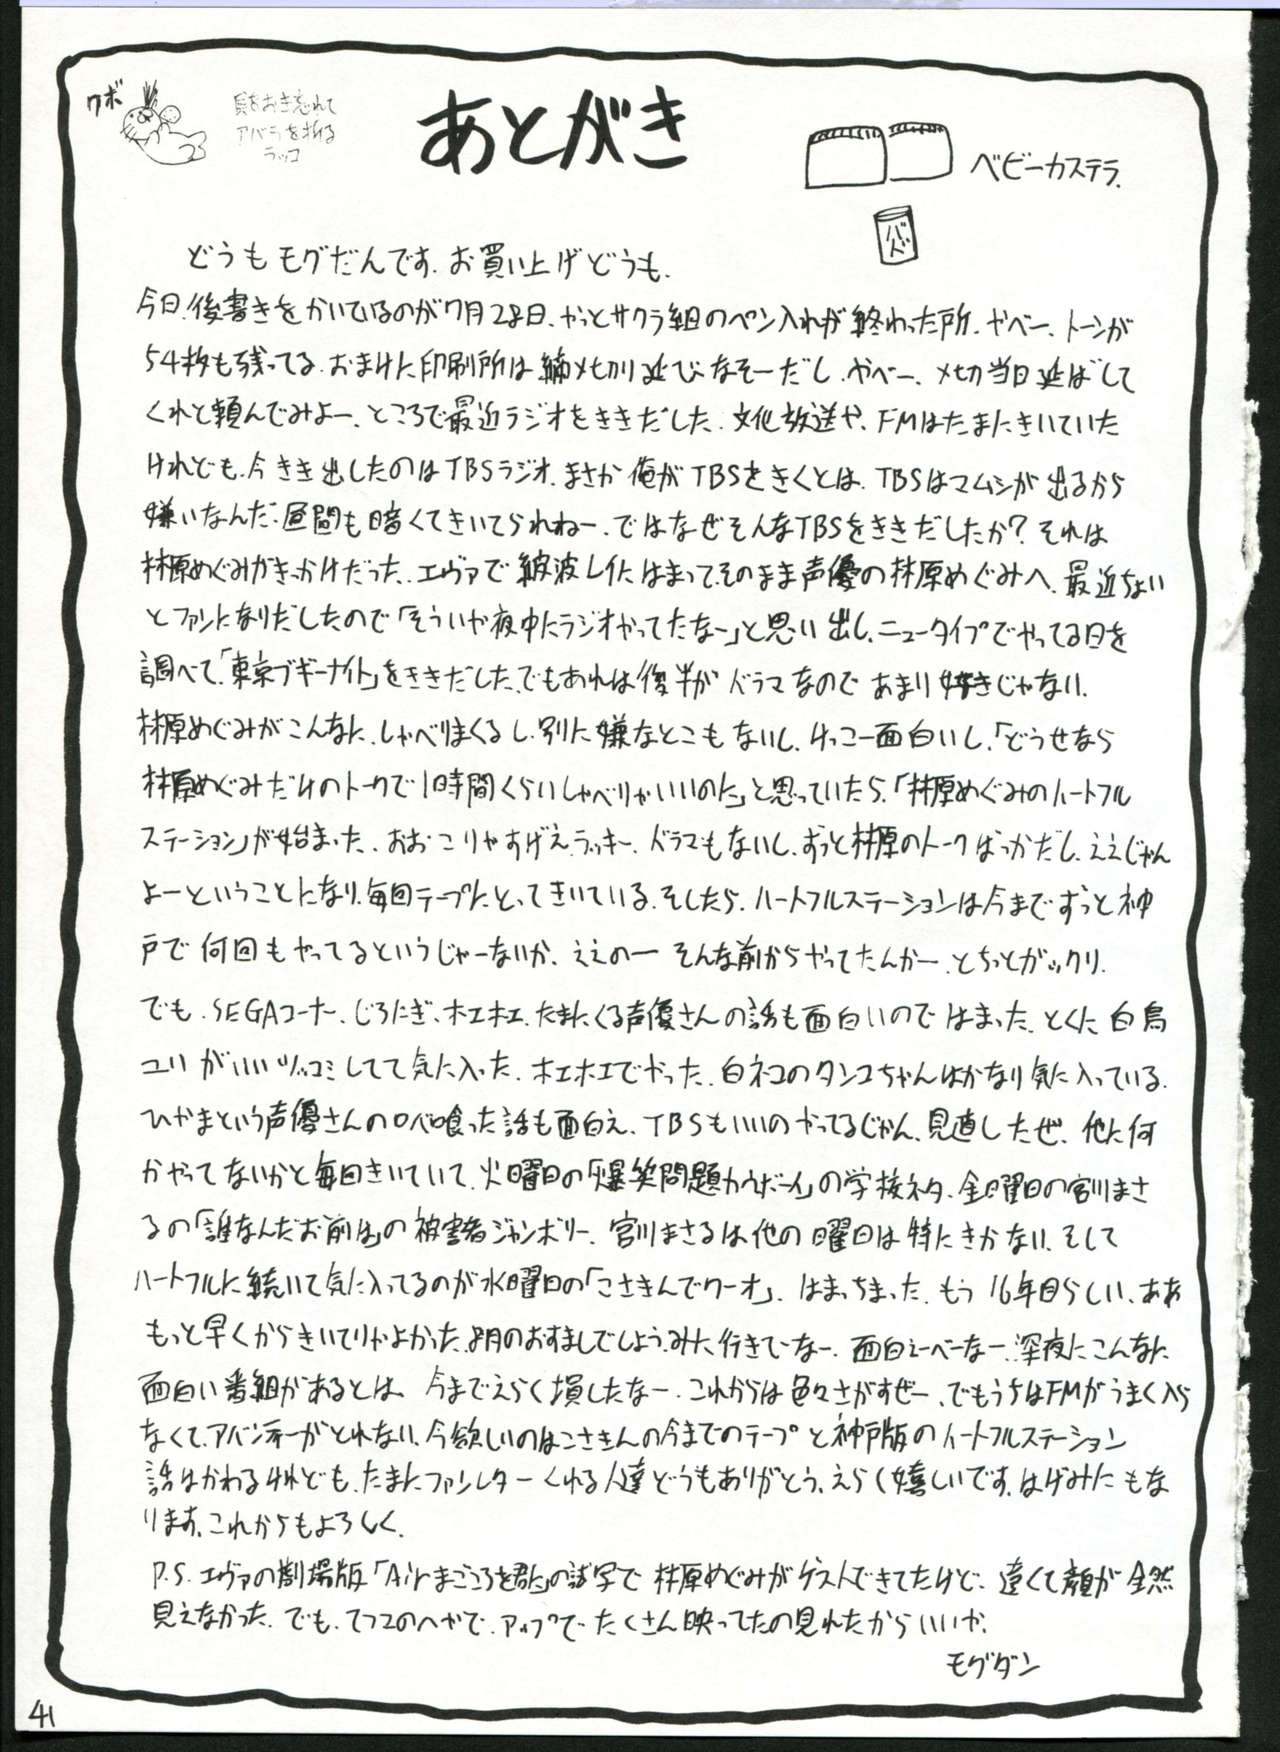 クボ
貝をおき忘れて
アバラを折る
ラッコ
あとがき
ベビーカステラ.
どうもモグだんです.お買い上げどうも.
今日.後書きをかいているのが7月28日.やっとサクラ組のペン入れが終わった所.やべー、トーンが
54枚も残ってる.おまけに印刷所は〆切り延びなそーだし.やべー、〆切当日延ばして
くれと頼んでみよー、ところで最近ラジオをききだした.文化放送や、FMはたまにきいていた
けれども.今きき出したのはTBSラジオ.まさか俺がTBSをきくとは.TBSはマムシが出るから
嫌いなんだ.昼間も暗くてきいてられねー.ではなぜそんなTBSをききだしたか?それは
林原めぐみがきっかけだった.エヴァで綾波レイにはまって、そのまま声優の林原めぐみへ.最近ちょい
とファンになりだしたので「そういや夜中にラジオやってたなー」と思い出し、ニュータイプでやってる日を
調べて、「東京ブギーナイト」をききだした、でもあれは後半がドラマなのであまり好きじゃない.
林原めぐみがこんなに.しゃべりまくるし.別に嫌なとこもないし、けっこー面白いし、「どうせなら
林原めぐみだけのトークで1時間くらいしゃべりゃいいのに」と思っていたら、「林原めぐみのハートフル
ステーション」が始まった.おおこりゃすげえ.ラッキー.ドラマもないし、ずっと林原のトークばっかだし、ええじゃん
よーということになり、毎回テープにとってきいている.そしたら.ハートフルステーションは今までずっと神
戸で何回もやってるというじゃーないか、ええのー そんな前からやってたんかー.とちっとガックリ.
でも.SEGAコーナー、じろたぎ、ホエホエ.たまにくる声優さんの話も面白いのではまった、とくに白鳥
ユリがいいツッコミしてて気に入った.ホエホエでやった.白ネコのタンコちゃんはかなり気に入っている.
ひやまという声優さんのロベ喰った話も面白え、TBSもいいのやってるじゃん、見直したぜ、他に何
かやってないかと毎回きいていて、火曜日の「爆笑問題カウボーイ」の学校ネタ、金曜日の宮川まさ
るの「誰なんだお前は」の被害者ジャンボリー、宮川まさるは他の曜日は特にきかない、そして
ハートフルに続いて気に入ってるのが水曜日の「こさきんでワーオ」.はまっちまった.もう16年目らしい、ああ
もっと早くからきいてりゃよかった.8月のおすましでしょうみに行きてーなー.面白えーべーなー.深夜にこんなに
面白い番組があるとは、今までえらく損したなー.これからは色々さがすぜー、でもうちはFMがうまく入ら
なくて、アバンティーがとれない、今欲しいのはこさきんの今までのテープと神戸版のハートフルステーション
話はかわるけれども.たまにファンレターくれる人達どうもありがとう、えらく嬉しいです、はげみにもな
ります、これからもよろしく.
P.S.エヴァの劇場版「Airまごころを君に」の試写で林原めぐみがゲストできてたけど、遠くて顔が全然
見えなかった.でも、てつこのへやで.アップでたくさん映ってたの見れたからいいや.
モグダン
41